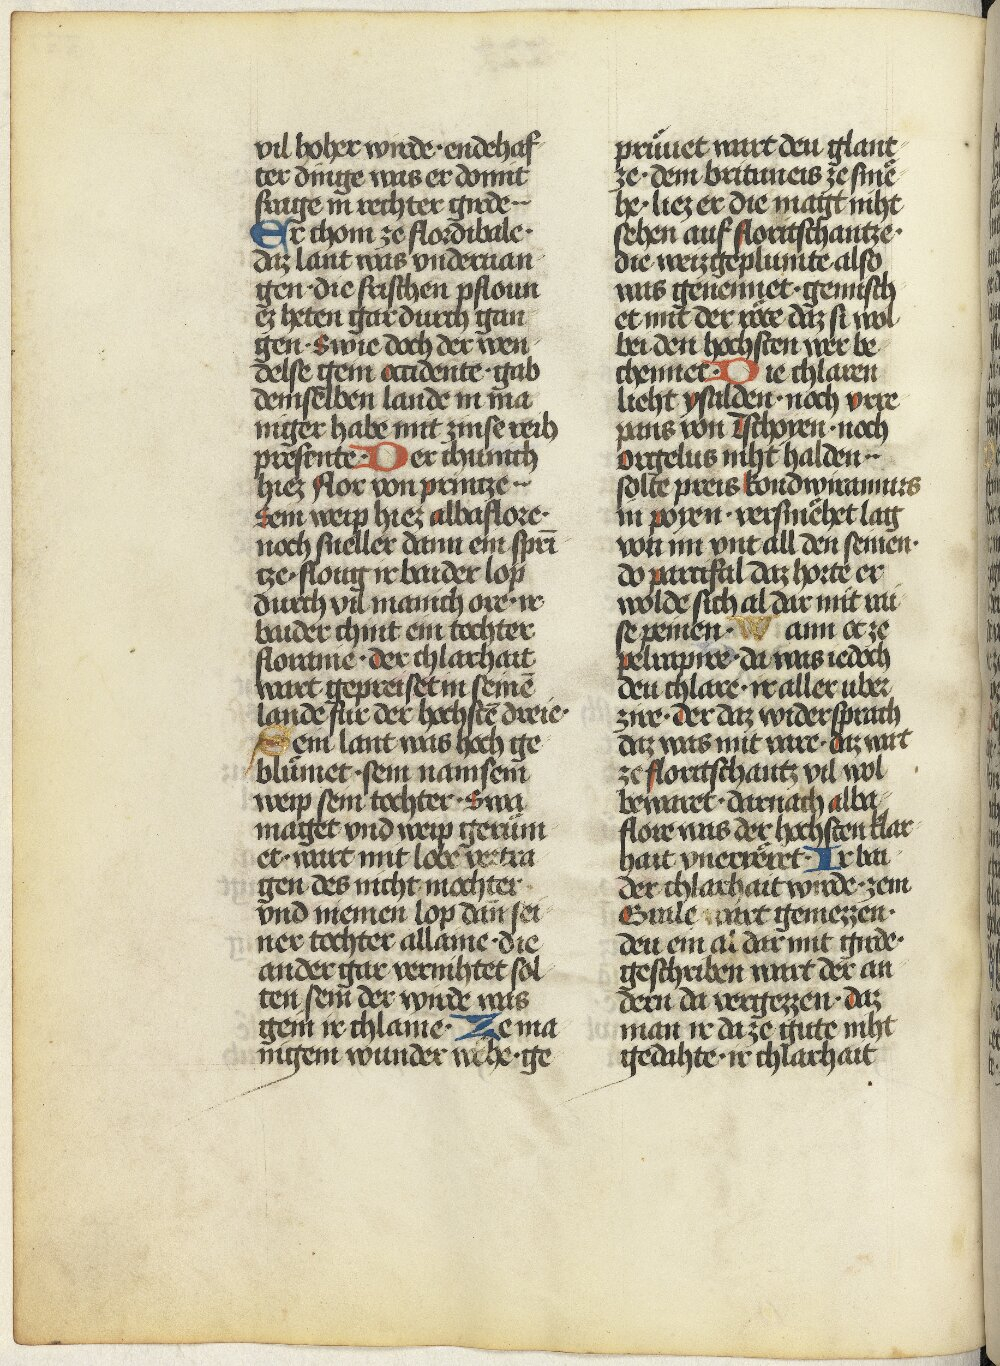 vil hoher wirde· endehaf
ter dinge was er domit
frage in rechter girde··
Er chom ze flordibale·
daz lant was vnderuan
gen· die frischen pfloun
ez heten gar durch gan
gen· Swie doch der wen
delse gem occidente· gab
demselben lande in ma
niger habe mit zinse reih
presente· Der chunich
hiez Flor von printze··
Sein weip hiez albaflore·
noch sneller dann ein spri
tze· floug ir baider lop
durch vil manich ore· ir
baider chint ein tochter
floraine· der chlarhait
wart gepreiset in seinē
lande für der hochstē dreie·
Sein lant was hoch ge
blümet· sein nam sein
weip sein tochter· Swa
maget vnd weip gerüm
et· wart mit lobe vertra
gen des nicht mochter
vnd niemen lop dañ sei
ner tochter allaine· die
ander gar vernihtet sol
ten sein der wirde was
gein ir chlaine· Ze ma
nigem wunder wehe· ge
prüuet wart deu glant
ze· dem brituneis ze smē
he· liez er die magt niht
sehen auf floritschantze·
die weizgeplumte also
was genennet· gemisch
et mit der röte daz si wol
bei den hochsten wer be
chennet· Die chlaren
lieht ysalden· noch vrre
pans von Tschoyen· noch
orgelus niht halden··
solte preis kondwiramurs
in poyen· versmehet lag
von im vnt all den seinen·
do partifal daz horte er
wolde sich al dar mit rai
se peinen· Wann ot ze
pelrapire· da was iedoch
deu chlare· ir aller uber
zire· der daz widersprach
daz was mit vare· daz wart
ze floritschantz vil wol
bewaret· darnach alba
flore was der hochsten klar
hait vnerröret· Ir bai
der chlarhait wirde· zem
Grale wart gemezzen·
deu ein al dar mit girde·
geschriben wart der an
dern da vergezzen· daz
man ir da ze gute niht
gedahte· ir chlarhait